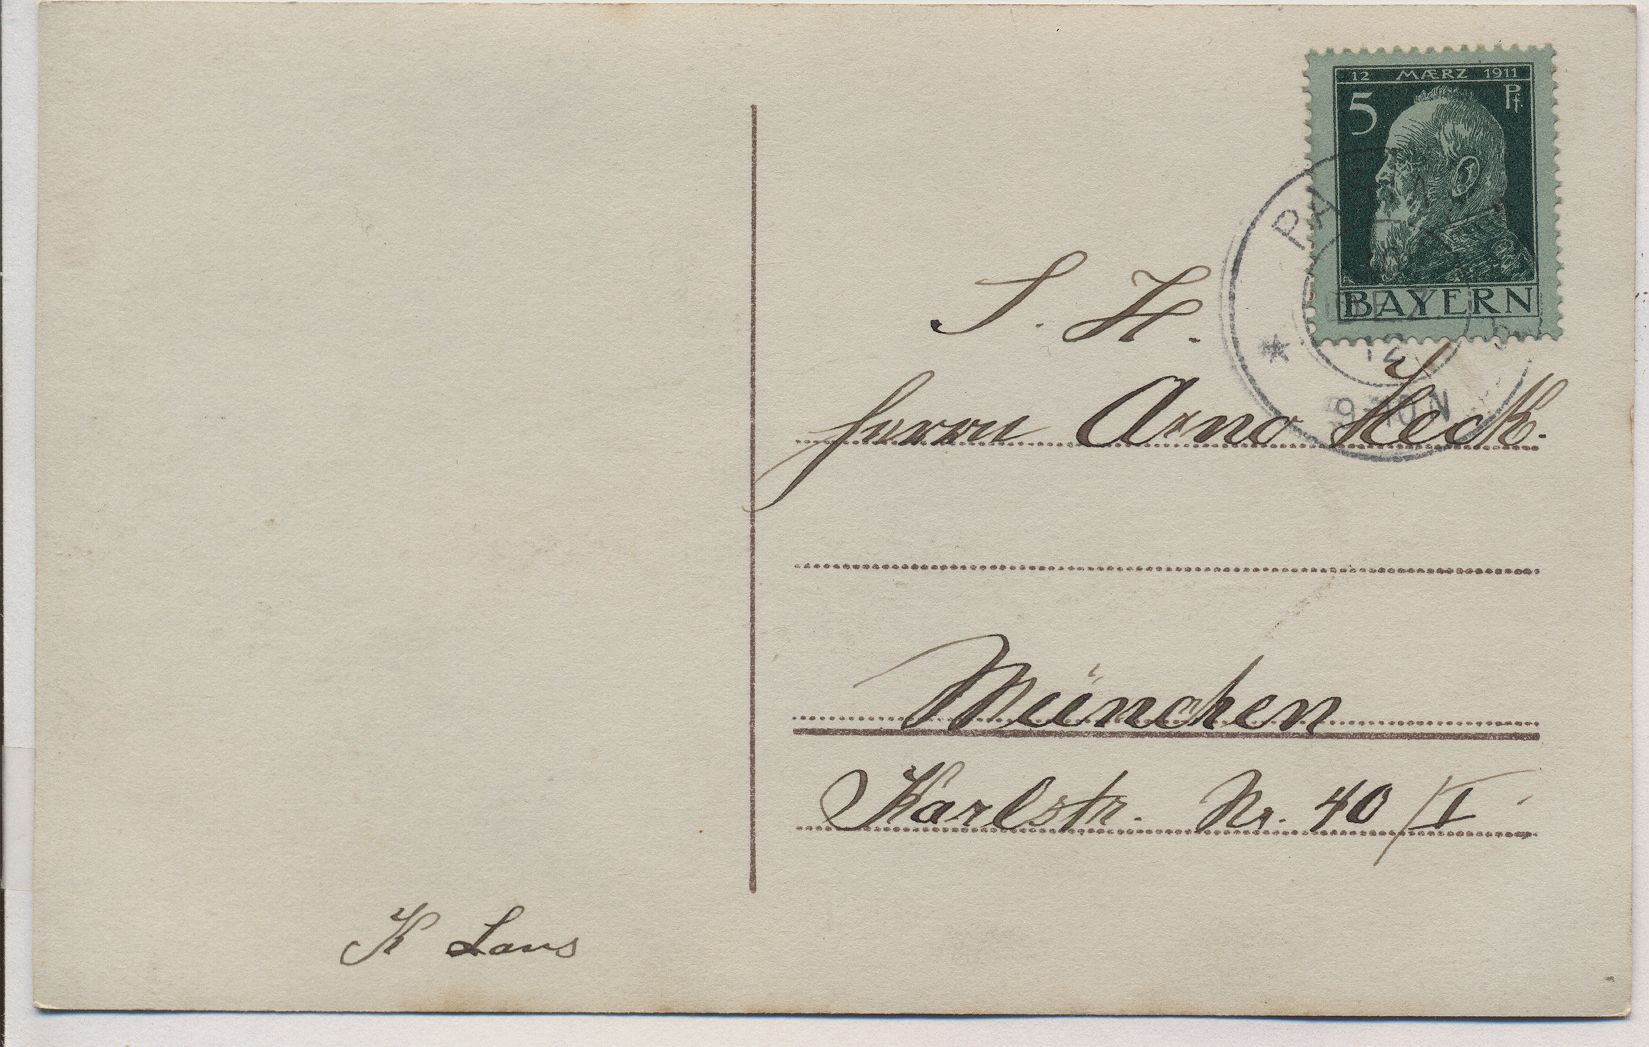 12 MÆRZ 1911
5 Pf.
BAYERN
* PA
DEZ
12
9-10 N
S. H.
Herrn Arno Heck.
München
Karlstr. Nr. 40/I
K Laus